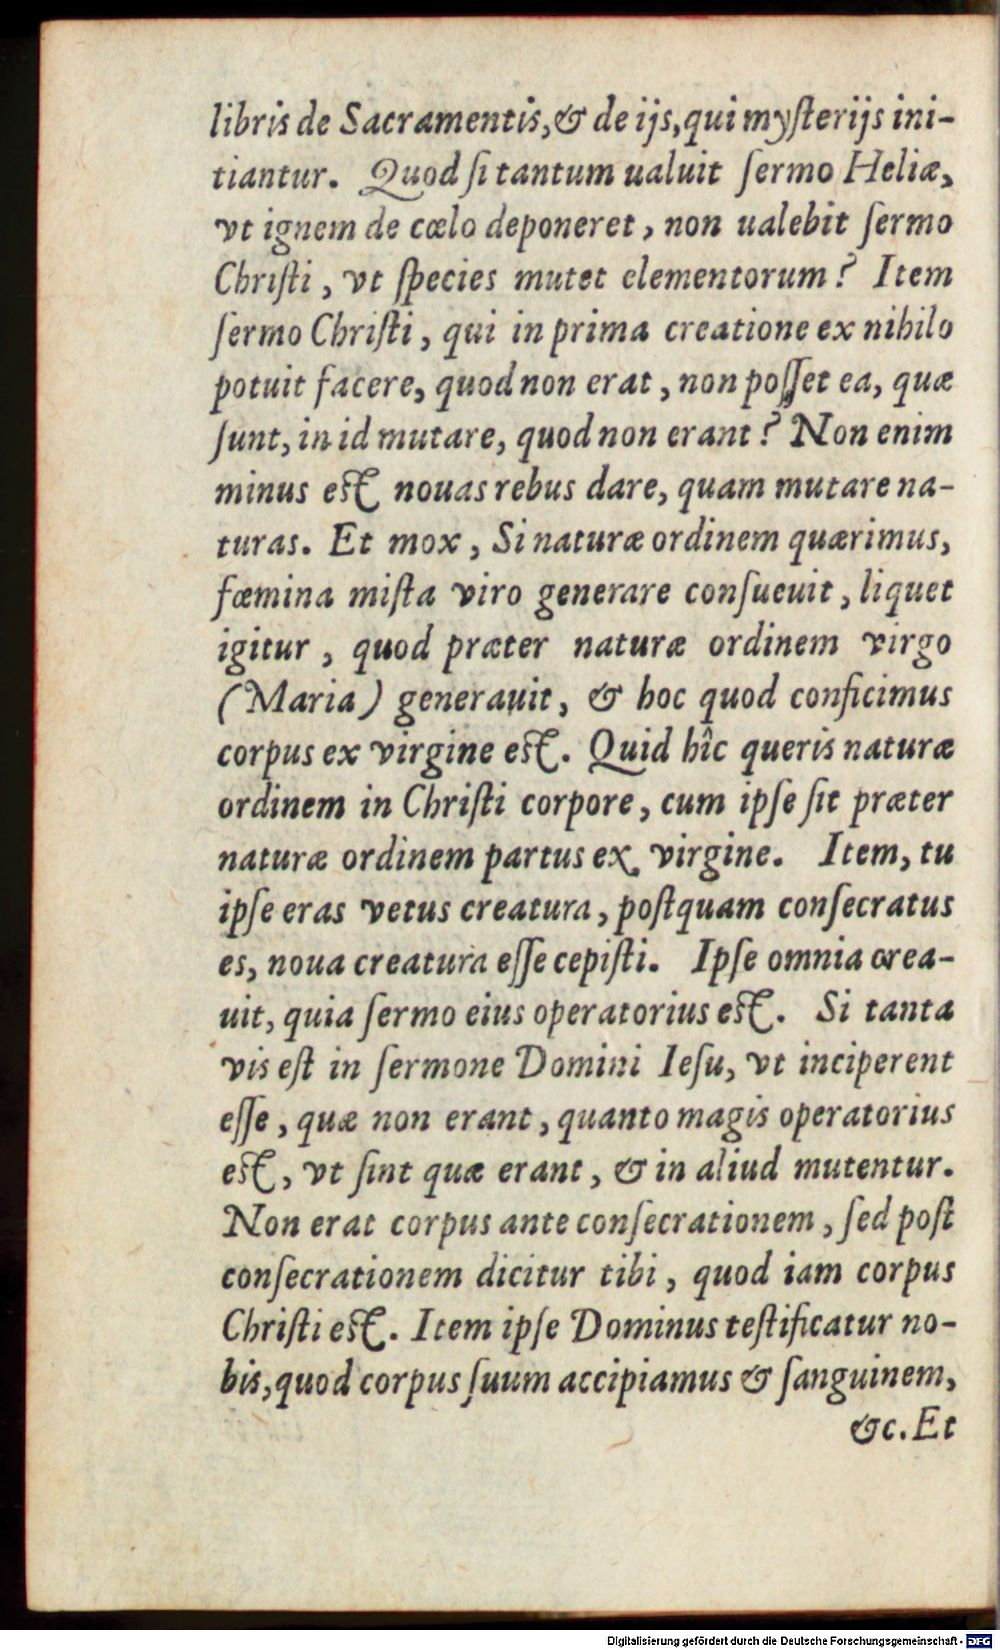 libris de Sacramentis, & de ijs, qui myſterijs ini-
tiantur. Quod ſi tantum ualuit ſermo Heliæ,
vt ignem de cœlo deponeret, non ualebit ſermo
Chriſti, vt ſpecies mutet elementorum? Item
ſermo Chriſti, qui in prima creatione ex nihilo
potuit facere, quod non erat, non poſſet ea, quæ
ſunt, in id mutare, quod non erant? Non enim
minus eſt nouas rebus dare, quam mutare na-
turas. Et mox, Si naturæ ordinem quærimus,
fœmina miſta viro generare conſueuit, liquet
igitur, quod præter naturæ ordinem virgo
(Maria) generauit, & hoc quod conficimus
corpus ex virgine eſt. Quid hîc queris naturæ
ordinem in Chriſti corpore, cum ipſe ſit præter
naturæ ordinem partus ex virgine. Item, tu
ipſe eras vetus creatura, poſtquam conſecratus
es, noua creatura eſſe cepiſti. Ipſe omnia crea-
uit, quia ſermo eius operatorius eſt. Si tanta
vis eſt in ſermone Domini Ieſu, vt inciperent
eſſe, quæ non erant, quanto magis operatorius
eſt, vt ſint quæ erant, & in aliud mutentur.
Non erat corpus ante conſecrationem, ſed poſt
conſecrationem dicitur tibi, quod iam corpus
Chriſti eſt. Item ipſe Dominus teſtificatur no-
bis, quod corpus ſuum accipiamus & ſanguinem,
&c. Et
Digitalisierung gefördert durch die Deutsche Forschungsgemeinschaft - DFG